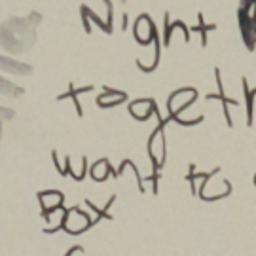 Night
togeth
want to
Box